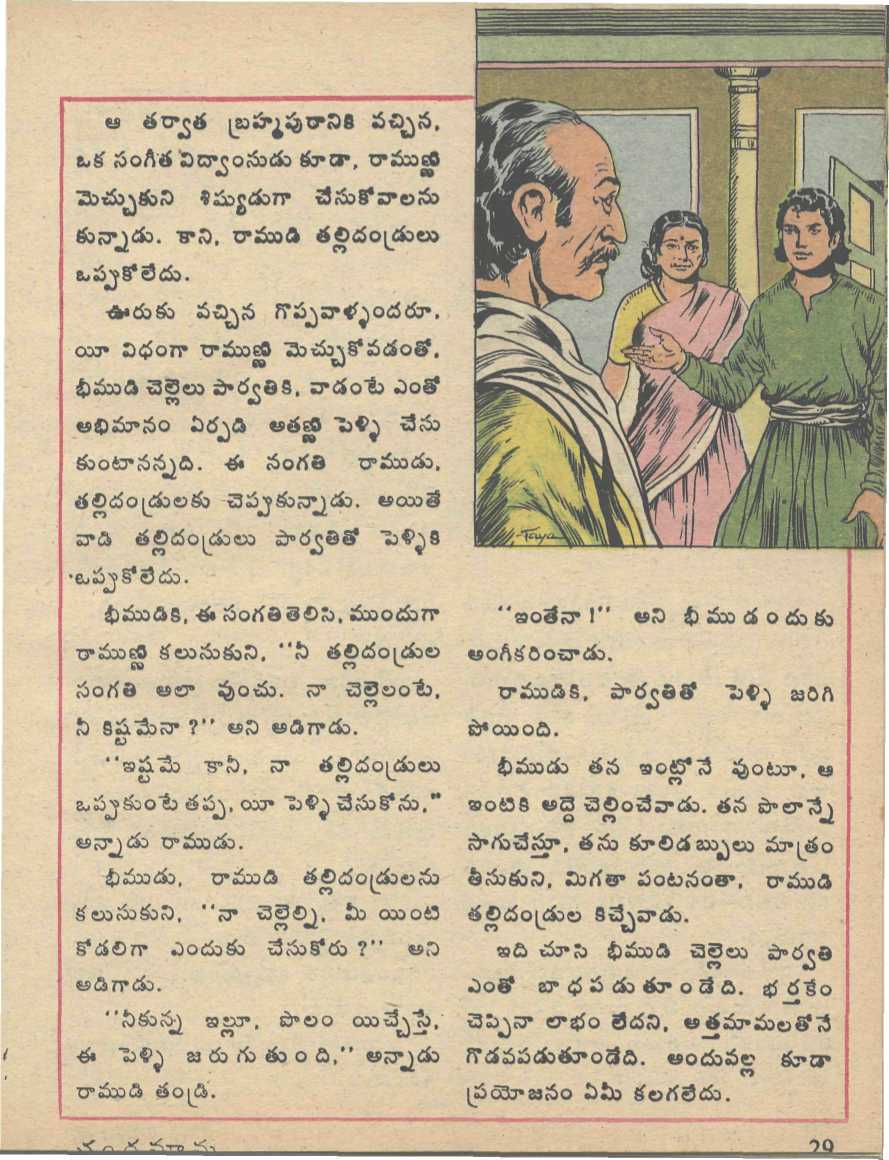 ఆ తర్వాత బ్రహ్మపురానికి వచ్చిన,
ఒక సంగీత విద్వాంసుడు కూడా, రాముణ్ణి
మెచ్చుకుని శిష్యుడుగా చేసుకోవాలను
కున్నాడు. కాని, రాముడి తల్లిదండ్రులు
ఒప్పుకోలేదు.
ఊరుకు వచ్చిన గొప్పవాళ్ళందరూ,
యీ విధంగా రాముణ్ణి మెచ్చుకోవడంతో,
భీముడి చెల్లెలు పార్వతికి, వాడంటే ఎంతో
అభిమానం ఏర్పడి అతణ్ణి పెళ్ళి చేసు
కుంటానన్నది. ఈ సంగతి రాముడు,
తల్లిదండ్రులకు చెప్పుకున్నాడు. అయితే
వాడి తల్లిదండ్రులు పార్వతితో పెళ్ళికి
ఒప్పుకోలేదు.
భీముడికి, ఈ సంగతితెలిసి, ముందుగా
రాముణ్ణి కలుసుకుని, ‘‘నీ తల్లిదండ్రుల
సంగతి అలా వుంచు. నా చెల్లెలంటే,
నీ కిష్టమేనా ?’’ అని అడిగాడు.
‘‘ఇష్టమే కానీ, నా తల్లిదండ్రులు
ఒప్పుకుంటే తప్ప, యీ పెళ్ళి చేసుకోను,’’
అన్నాడు రాముడు.
భీముడు, రాముడి తల్లిదండ్రులను
కలుసుకుని, ‘‘నా చెల్లెల్ని, మీ యింటి
కోడలిగా ఎందుకు చేసుకోరు ?’’ అని
అడిగాడు.
‘‘నీకున్న ఇల్లూ, పొలం యిచ్చేస్తే,
ఈ పెళ్ళి జరుగుతుంది,’’ అన్నాడు
రాముడి తండ్రి.
‘‘ఇంతేనా !’’ అని భీముడందుకు
అంగీకరించాడు.
రాముడికి, పార్వతితో పెళ్ళి జరిగి
పోయింది.
భీముడు తన ఇంట్లోనే వుంటూ, ఆ
ఇంటికి అద్దె చెల్లించేవాడు. తన పొలాన్నే
సాగుచేస్తూ, తను కూలిడబ్బులు మాత్రం
తీసుకుని, మిగతా పంటనంతా, రాముడి
తల్లిదండ్రుల కిచ్చేవాడు.
ఇది చూసి భీముడి చెల్లెలు పార్వతి
ఎంతో బాధపడుతూండేది. భర్తకేం
చెప్పినా లాభం లేదని, అత్తమామలతోనే
గొడవపడుతూండేది. అందువల్ల కూడా
ప్రయోజనం ఏమీ కలగలేదు.
29